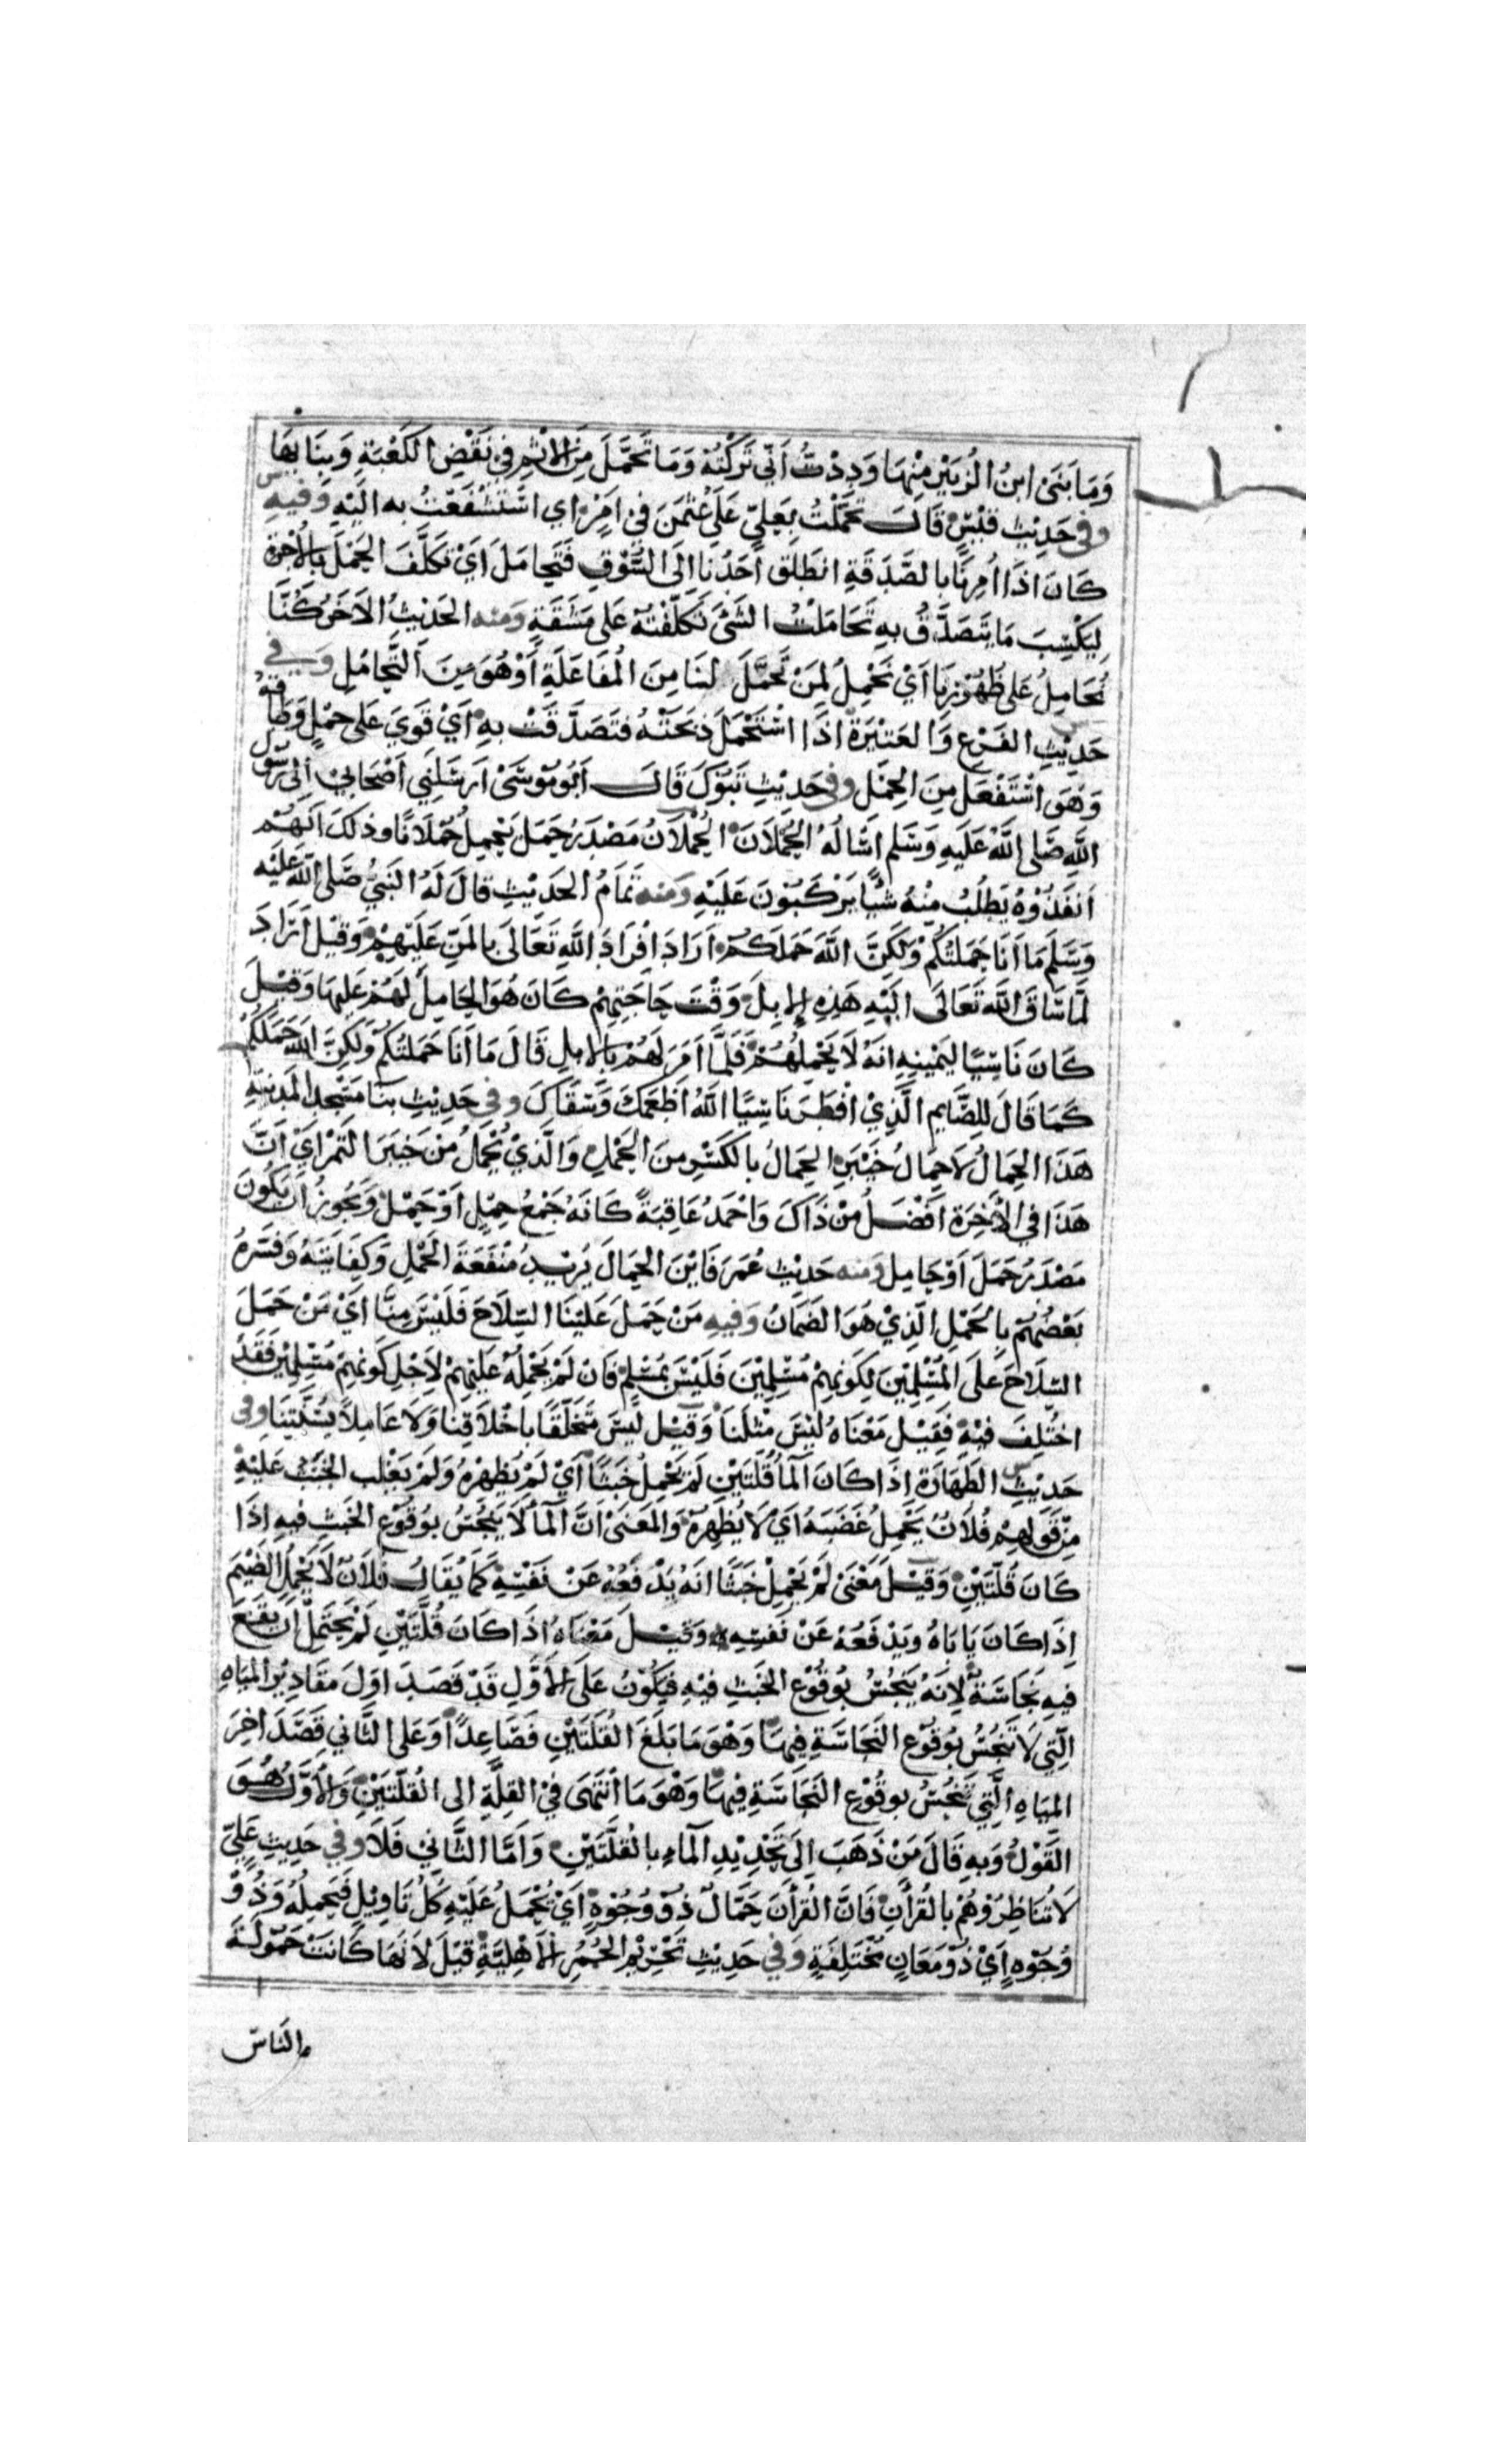 وَمَا بَنَى ابنُ الزُبَيْرِ مِنْهَا وَدِدْتُ أَنّي تَرَكْتُهُ وَمَا تَحَمَّلَ مِنَ الاثْمِ فِي نَقْضِ الكَعْبَةِ وَبِنَائِهَا
وفي حَدِيْثِ قَيْسٍ قَالَ تَحَمَّلْتُ بِعَلِيٍّ عَلَى عُثْمَنَ فِي اَمْرٍ اي اسْتَشْفَعْتُ به اليَهِ وفيهِ
كَانَ اذَا اُمِرْنَا بالصَّدَقَةِ انطَلَقَ أَحَدُنَا اِلَى السُّوْقِ فَتَحَامَلَ اَيْ تَكَلَّفَ الحَمْلَ بالأُجْرَةِ
لِيَكْسِبَ مَا يَتَصَدَّقُ بهِ تَحَامَلْتُ الشَىْ تَكَلَّفْتهُ عَلى مَشَقَةٍ وَمنه الحَدِيْثِ الاخَرُ كُنَّا
نُحَامِلُ عَلى ظُهُوْرِنَا اَيْ نَحْمِلُ لِمَنْ تَحَمَّلَ لنَا مِنَ المُفَاعَلَةِ اَوْ هُوَ مِنَ التَّحَامُلِ وَفي
حَدِيْثِ الفَرَعِ وَالعَتِيْرَةِ اذَا اسْتَحْمَلَ ذَبَحَتْهُ فتَصَدَّقَتْ بهِ اَيْ قَوِيَ عَلى حَمْلٍ وَطَاقَهُ
وَهُوَ اسْتَفْعَلَ مِنَ الحِمْلِ وفي حَدِيْثِ تَبُوْكَ قَالَ اَبُو مُوْسَى اَرسَلَنِي اَصْحَابِيْ اِلَى رَسُوْلِ
اللهِ صَلى اللهُ عَلَيهِ وَسَلم اَسْأَلُهُ الحُمْلَانَ الحُمْلَانُ مَصْدَرُ حَمَلَ يَحْمِلُ حُمْلَانًا وذلكَ اَنهُمْ
اَنفَذُوْهُ يَطلُبُ مِنْهُ شَيْأً يَرْكَبُوْنَ عَلَيْهِ وَمنه تَمَامُ الحَدِيْثِ قَالَ لَهُ النَبيُّ صَلى الله عَليْه
وَسَلَّم مَا اَنَا حَمَلتُكُمْ وَلَكِنَّ اللهَ حَمَلَكُمْ اَرَادَ اِفْرَادَ اللهِ تَعَالَى بالمَنِّ عَلَيْهِمْ وَقِيْلَ اَرَادَ
لَمَّا سَاقَ اللهُ تَعَالَى اليَهِ هَذِهِ الإبِلَ وَقْتَ حَاجَتِهِمْ كَانَ هُوَ الحَامِلُ لَهُمْ عَليهَا وَقِيْلَ
كَانَ نَاسِيًا ليَمْينِهِ انَهُ لَا يَحْمِلُهُمْ فَلَمَّا اَمَرَ لَهُمْ بالابلِ قَالَ مَا اَنَا حَمَلتُكُمْ وَلَكِنَّ اللهَ حَمَلَكُمْ
كَمَا قَالَ لِلصَّايم الَّذِيْ اَفْطَرَ نَاسِيًا اللهُ اَطْعَمَكَ وَسَقَاكَ وفي حَدِيْثِ بنَا مَسْجِدِ المَدِيْنَةِ
هَذَا الحِمَالُ لَا حِمَالُ خَيْبَرِ الحِمَالُ بالكَسْرِ منَ الحَمْلِ وَالَّذِيْ يُحْمَلُ مِنْ خَيبَرَ التَمْرُ اَيْ انَّ
هَذَا في الأخِرَةِ اَفْضَلُ مِنْ ذَاكَ وَاحْمَدُ عَاقِبَةً كَانَهُ جَمْعُ حِمْلٍ اَوْ حَمْلٍ وَيَجُوزُ اَن يَكُوْنَ
مَصْدَرُ حَمَلَ اَوْ حَامِلِ وَمنه حَدِيْثِ عُمَرَ فَايْنَ الحِمَالَ يُرِيْدُ مَنْفَعَةَ الحَمْلِ وَكِفَايتَهُ وَفَسَرهُ
بَعْضُهُمْ بالحَمْلِ الَّذِيْ هَوَ الضَمَانُ وَفيهِ مَنْ حَمَلَ عَلَيْنَا السِّلَاحَ فَلَيْسَ مِنَّا اَيْ مَنْ حَمَلَ
السِّلَاحَ عَلَى المُسْلِمِيْنَ لِكَوْنِهِمْ مُسْلِمِيْنَ فَلَيْسَ بمُسْلِمٍ فَان لَمْ يَحْمِلْهُ عَليْهِمْ لاَجْلِ كَوْنِهِمْ مُسْلِمِيْنَ فَقَدْ
اختُلِفَ فيْهِ فَقِيْلَ مَعْنَاهُ ليْسَ مِثْلَنَا وَقِيْلَ ليسَ مُتَخَلِّقًا باَخْلَاقِنَا وَلَا عَامِلاً بسُنَّتِنَا وفي
حَدِيْثِ الطَهَارَةِ اِذَا كَانَ المآُ قُلَّتَيْنِ لَمْ يَحْمِلْ خَبَثًا اَيْ لَمْ يُظْهِرْهُ وَلَمْ يَغْلِبِ الخَبَثُ عَليْهِ
مِنْ قَوْلِهِمْ فُلاَنٌ يَحْمِلُ غَضَبَهُ اَيْ لَا يُظْهِرهُ وَالمَعنَىْ انَّ المآَ لَا يَنْجُسُ بوُقُوْعِ الخَبَثِ فيهِ اِذَا
كَانَ قُلَّتَيْنِ وَقِيْلَ مَعْنَى لَمْ يَحْمِلْ خَبَثًا انَهُ يَدْفَعُهُ عَنْ نَفسِهِ كَمَا يُقَالُ فُلاَنٌ لَا يَحْمِلُ الضَيْمَ
اِذَا كَانَ يَابَاهُ وَيَدْفَعُهُ عَنْ نَفسِهِ وَقِيْلَ مَعْنَاهُ اذَا كَانَ قُلَّتَيْنِ لَمْ يَحتَمِلْ ان يَقَعَ
فيهِ نَجَاسَةٌ لاَنَهُ يَنْجُسُ بوُقُوْعِ الخَبَثِ فيْهِ فيَكُوْنُ عَلَى الأوَّلِ قَدْ قَصَدَ اوَّلَ مَقَادِيْرِ المِيَاهِ
الَّتِي لَا تَنْجُسُ بوُقُوْعِ النَجَاسَةِ فِيهَا وَهُوَ مَا بَلَغَ القُلَتَيْنِ فَصَاعِدًا وَعَلَى الثَّاني قَصَدَ اخِرَ
المِيَاهِ الَّتِي تَنْجُسُ بوقُوْعِ النَجَاسَةِ فِيهَا وَهْوَ مَا انْتَهَى فيْ القِلَّةِ الى القُلَّتَيْنِ وَالأوَّلُ هُوَ
القَوْلُ وَبهِ قَالَ مَنْ ذَهَبَ اِلَى تَحْدِيْدِ المآءِ بالقُلَّتَيْنِ وَاَمَّا الثَّانيْ فَلَا وفي حَدِيْثِ عَلِيّ
لَا تُنَاظِرُوْهُمْ بالقُرْأنِ فَانَّ القُرْأَنَ حَمَّالٌ ذُوْ وُجُوْهٍ اَيْ يُحْمَلُ عَلَيْهِ كُلُّ تَاوِيْلٍ فَيَحمِلُهُ وَذُوْ
وُجُوْهٍ اَيْ ذُوْ مَعَانٍ مُخْتَلِفَةٍ وَفي حَدِيْثِ تَحْرِيْمِ الحُمُرِ الأَهْلِيَّةِ قيْلَ لانَهَا كَانَتْ حَمُوْلَةَ
النَّاسِ